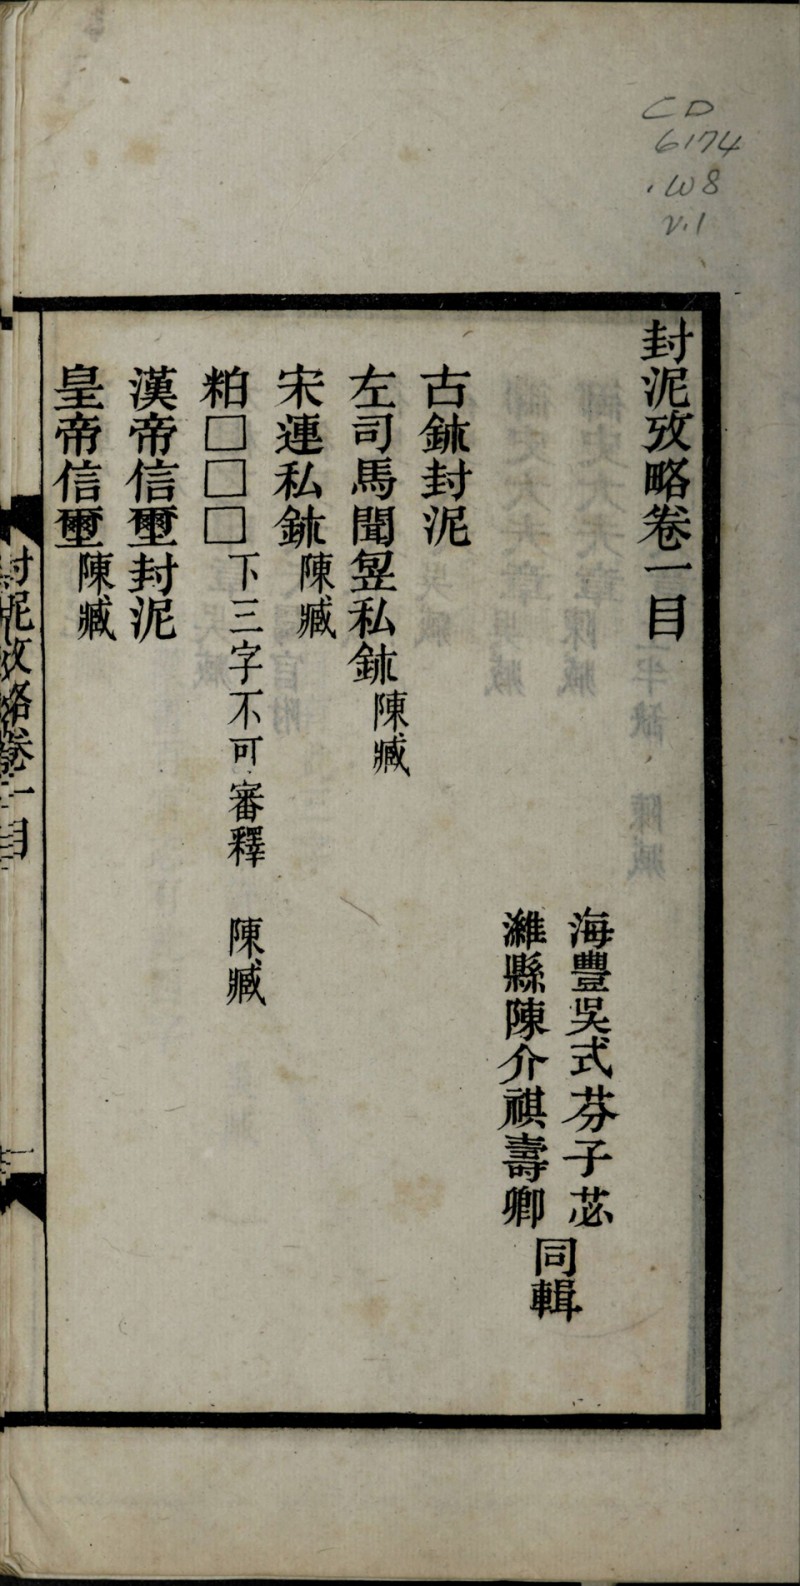 CD
6174
.W8
v.1
封泥攷略卷一目
海豐吳式芬子苾
濰縣陳介祺壽卿
同輯
古鉥封泥
左司馬聞竘私鉥 陳臧
宋連私鉥 陳臧
粕□□□ 下三字不可審釋 陳臧
漢帝信璽封泥
皇帝信璽 陳臧
封泥攷略卷一目
一